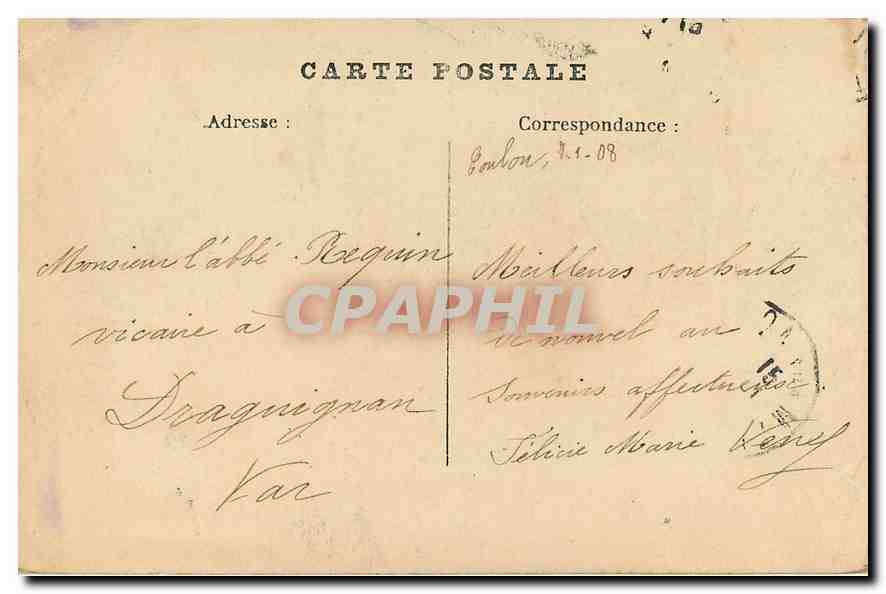 CARTE POSTALE
Adresse :
Monsieur l'abbé Requin
vicaire à
Draguignan
Var
Correspondance :
Toulon, 1-08
Meilleurs souhaits
de nouvel an
Souvenirs affectueux
Félicie Marie
CPAPHIL